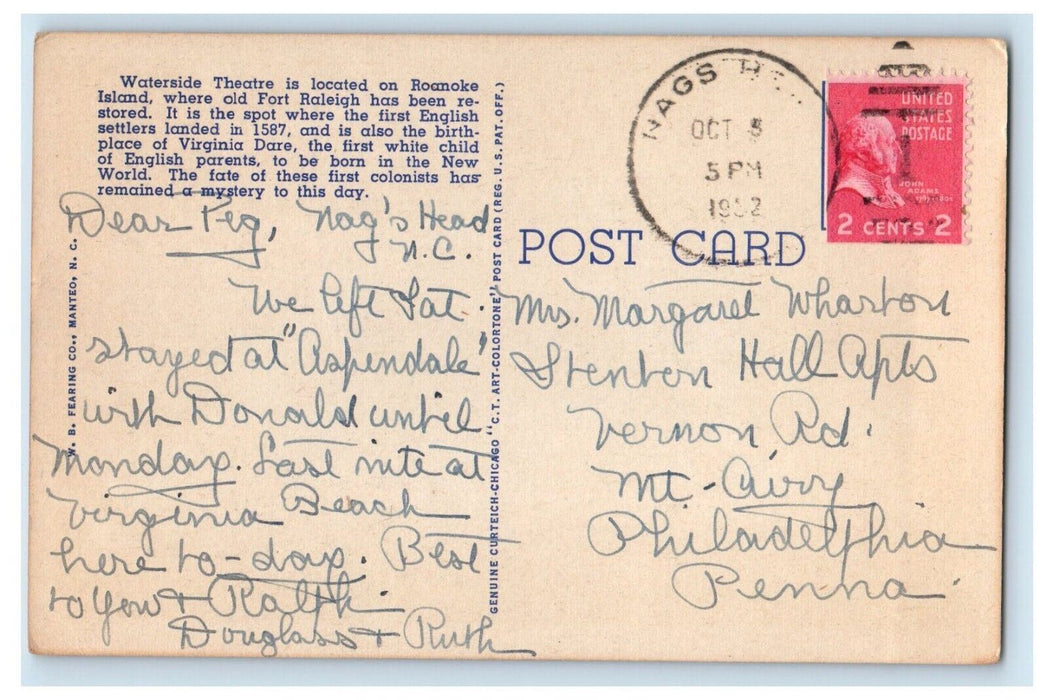 Waterside Theatre is located on Roanoke
Island, where old Fort Raleigh has been re-
stored. It is the spot where the first English
settlers landed in 1587, and is also the birth-
place of Virginia Dare, the first white child
of English parents, to be born in the New
World. The fate of these first colonists has
remained a mystery to this day.
Dear Peg, Nag's Head
N.C.
We left Sat.
stayed at "Aspendale"
with Donald until
Monday. Last nite at
Virginia Beach
here to-day. Best
to you + Ralph.
Douglass + Ruth
W. B. FEARING CO., MANTEO, N. C.
GENUINE CURTEICH-CHICAGO "C.T. ART-COLORTONE" POST CARD (REG. U.S. PAT. OFF.)
POST CARD
NAGS
OCT
5 PM
1952
UNITED
STATES
POSTAGE
JOHN
ADAMS
2 CENTS 2
Mrs. Margaret Wharton
Stenton Hall Apts
Vernon Rd.
Mt. Airy
Philadelphia
Penna.